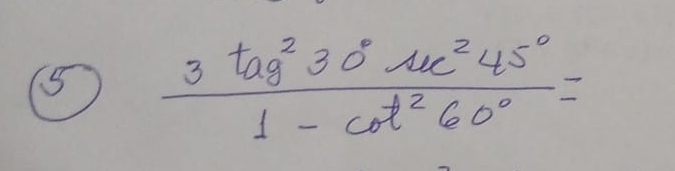 ⑤ 3 tag² 30° sec² 45° =
1 - cot² 60°